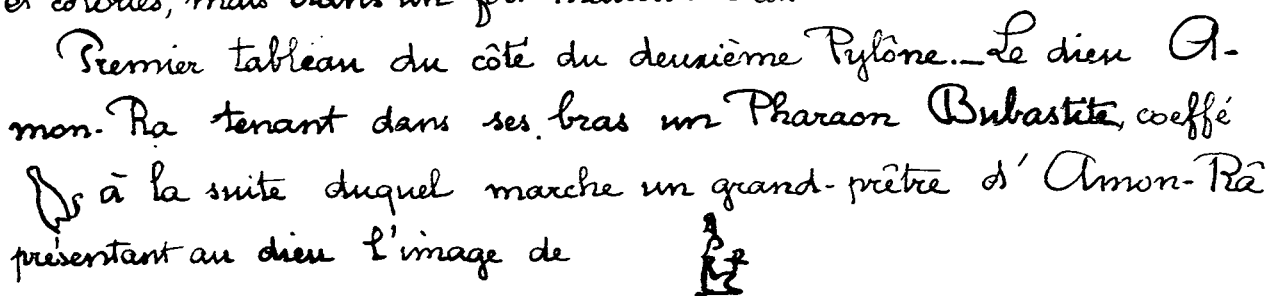 et coloriés, mais dans un
Premier tableau du côté du deuxième Pylône._Le dieu A-
mon-Ra tenant dans ses bras un Pharaon Bubastite, coeffé
à la suite duquel marche un grand-prêtre d'Amon-Râ
présentant au dieu l'image de